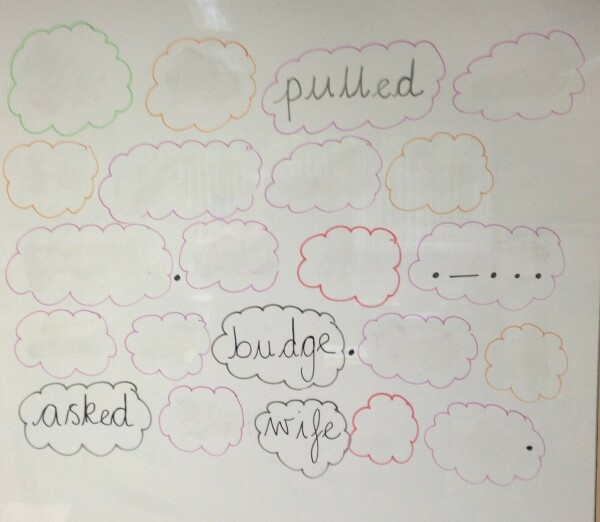 pulled
. . — . . .
budge .
asked wife .